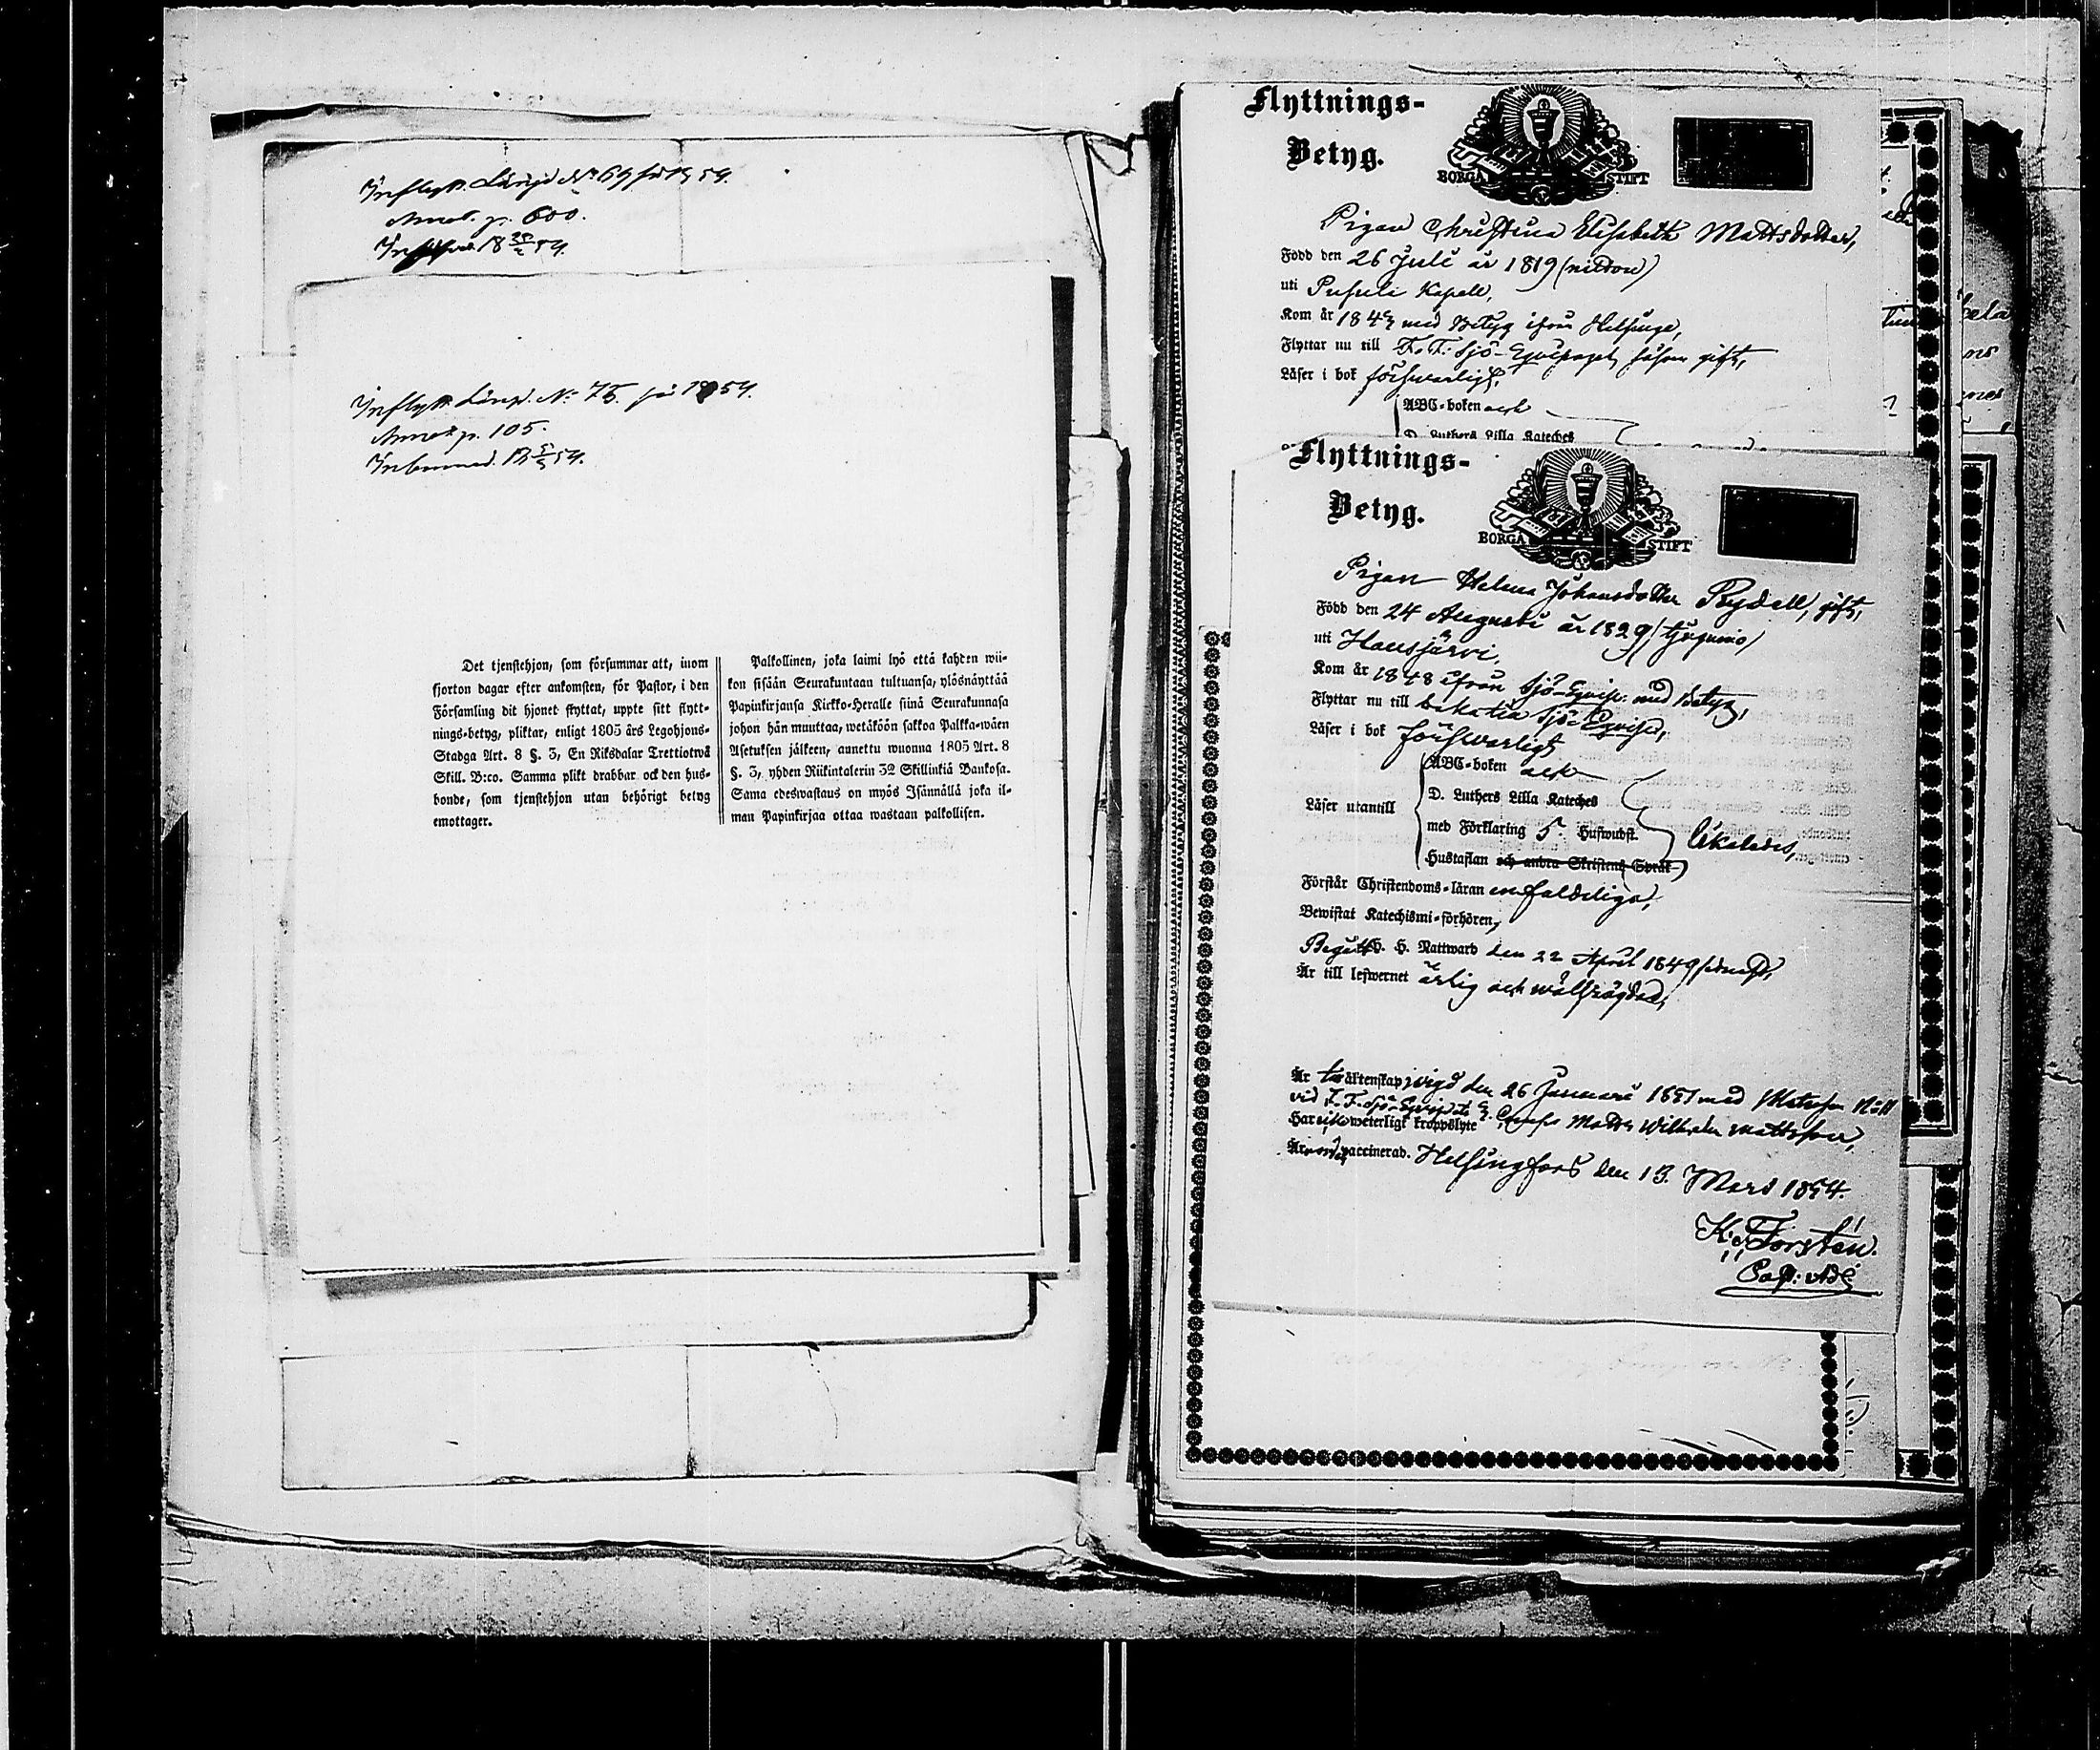 Inflytt. Längd No 69 för 1854.
Annot. p. 600.
18 54.
Inflytt. Längd. No 75. för 1854.
Annot. p. 105.
54.
Det tjenstehjon, som försummar att, inom
fjorton dagar efter ankomsten, för Pastor, i den
Församling dit hjonet flyttat, uppte sitt flytt-
nings-betyg, pliktar, enligt 1805 års Legohjons-
Stadga Art. 8 §. 3, En Riksdalar Trettiotwå
Skill. B:co. Samma plikt drabbar ock den hus-
bonde, som tjenstehjon utan behörigt betyg
emottager.
Palkollinen, joka laimi lyö että kahden wii-
kon sisään Seurakuntaan tultuansa, ylösnäyttää
Papinkirjansa Kirkko-Heralle siinä Seurakunnasa
johon hän muuttaa, wetäköön sakkoa Palkka-wäen
Asetuksen jälkeen, annettu wuonna 1805 Art. 8
§. 3, yhden Riikintalerin 32 Skillinkiä Bankosa.
Sama edeswastaus on myös Isännällä joka il-
man Papinkirjaa ottaa wastaan palkollisen.
Flyttnings-
Betyg.
BORGÅ STIFT
Pigan Christina Elisabeth Mattsdotter,
Född den 26 Juli år 1819 (nitton)
uti Pusula Kapell,
Kom år 184 med Betyg ifrån Helsinge,
Flyttar nu till F. F. Sjö-Equipaget såsom gift,
Läser i bok försvarligt,
ABC-boken och
D. Luthers Lilla Kateches
Flyttnings-
Betyg.
BORGÅ STIFT
Pigan Helena Johansdotter Rydell, gift,
Född den 24 Augusti år 1829 (tjugunio)
uti Hausjärvi,
Kom år 1848 ifrån Sjö-Equip. med Betyg,
Flyttar nu till bekatia Sjö-Equip.,
Läser i bok försvarligt
ABC-boken och
Läser utantill
D. Luthers Lilla Kateches
med Förklaring 5. Hufwudst.
likaledes,
Hustaflan och andra Skriftens Språk
Förstår Christendoms-läran enfaldeliga,
Bewistat Katechismi-förhören,
Begått H. H. Nattward den 22 April 1849 sednast,
Är till lefwernet ärlig och wälfrägdad,
Är i äktenskap wigd den 26 Januari 1851 med Matrosen No 11
vid F. F. Sjö-Equip. Comp. Matts Wilhelm Mattsson,
Har icke weterligt kroppslyte
Är vaccinerad. Helsingfors den 13. Mars 1854.
K. J. Forstén.
Cap: Adj.